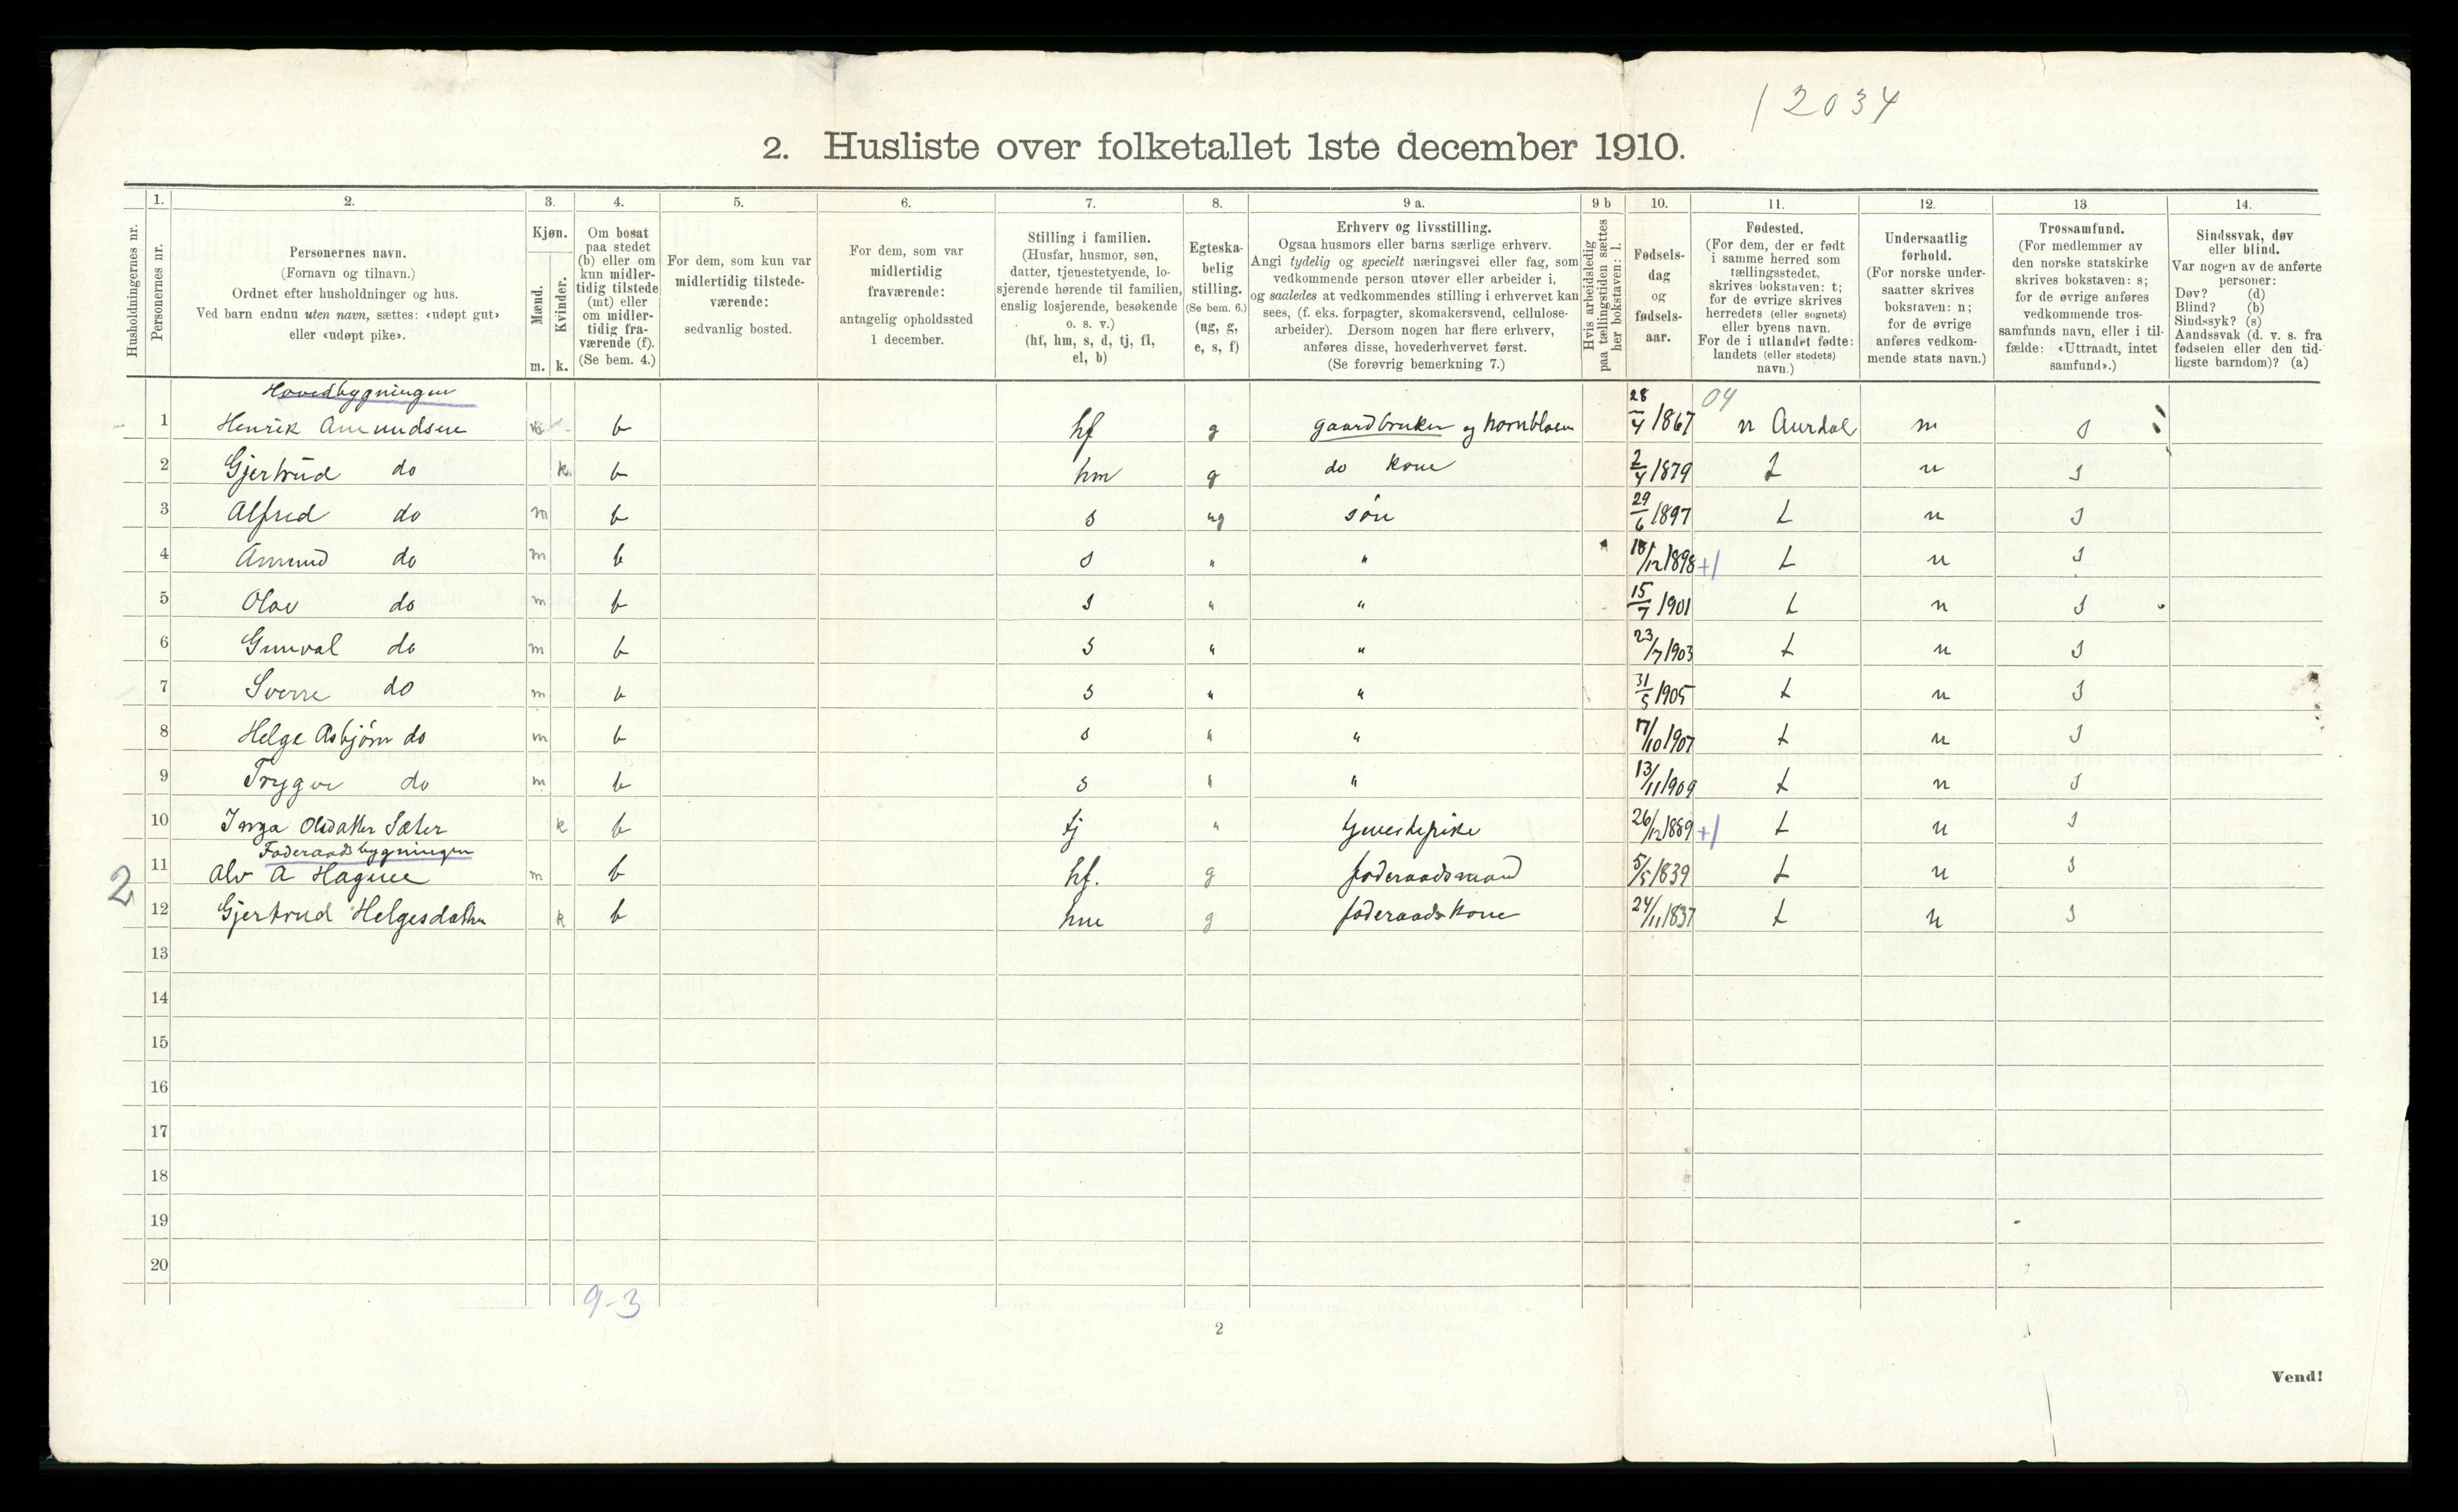 12034
2. Husliste over folketallet 1ste december 1910.
Husholdningernes nr.
1.
Personernes nr.
2.
Personernes navn.
(Fornavn og tilnavn.)
Ordnet efter husholdninger og hus.
Ved barn endnu uten navn, sættes: «udøpt gut»
eller «udøpt pike».
3.
Kjøn.
Mænd.
Kvinder.
m. k.
4.
Om bosat
paa stedet
(b) eller om
kun midler-
tidig tilstede
(mt) eller
om midler-
tidig fra-
værende (f).
(Se bem. 4.)
5.
For dem, som kun var
midlertidig tilstede-
værende:
sedvanlig bosted.
6.
For dem, som var
midlertidig
fraværende:
antagelig opholdssted
1 december.
7.
Stilling i familien.
(Husfar, husmor, søn,
datter, tjenestetyende, lo-
sjerende hørende til familien,
enslig losjerende, besøkende
o. s. v.)
(hf, hm, s, d, tj, fl,
el, b)
8.
Egteska-
belig
stilling.
(Se bem. 6.)
(ug, g,
e, s, f)
9 a.
Erhverv og livsstilling.
Ogsaa husmors eller barns særlige erhverv.
Angi tydelig og specielt næringsvei eller fag, som
vedkommende person utøver eller arbeider i,
og saaledes at vedkommendes stilling i erhvervet kan
sees, (f. eks. forpagter, skomakersvend, cellulose-
arbeider). Dersom nogen har flere erhverv,
anføres disse, hovederhvervet først.
(Se forøvrig bemerkning 7.)
9 b
Hvis arbeidsledig
paa tællingstiden sættes
her bokstaven: l.
10.
Fødsels-
dag
og
fødsels-
aar.
11.
Fødested.
(For dem, der er født
i samme herred som
tællingsstedet,
skrives bokstaven: t;
for de øvrige skrives
herredets (eller sognets)
eller byens navn.
For de i utlandet fødte:
landets (eller stedets)
navn.)
12.
Undersaatlig
forhold.
(For norske under-
saatter skrives
bokstaven: n;
for de øvrige
anføres vedkom-
mende stats navn.)
13
Trossamfund.
(For medlemmer av
den norske statskirke
skrives bokstaven: s;
for de øvrige anføres
vedkommende tros-
samfunds navn, eller i til-
fælde: «Uttraadt, intet
samfund».)
14.
Sindssvak, døv
eller blind.
Var nogen av de anførte
personer:
Døv? (d)
Blind? (b)
Sindssyk? (s)
Aandssvak (d. v. s. fra
fødselen eller den tid-
ligste barndom)? (a)
Hovedbygningen
04
1 Henrik Amundsen m b hf g gaardbruker og hornblaser 28/4 1867 n Aurdal n s
2 Gjertrud do k b hm g do kone 2/4 1879 t n s
3 Alfred do m b s ug søn 29/6 1897 t n s
4 Amund do m b s " " 18/12 1898 +1 t n s
5 Olav do m b s " " 15/7 1901 t n s
6 Gunval do m b s " " 23/7 1903 t n s
7 Sverre do m b s " " 31/5 1905 t n s
8 Helge Asbjørn do m b s " " 17/10 1907 t n s
9 Trygve do m b s " " 13/11 1909 t n s
10 Inga Olsdatter Sæter k b tj " tjenestepike 26/12 1889 +1 t n s
Føderaadsbygningen
2 11 Alv A Hagene m b hf. g føderaadsmand 5/5 1839 t n s
12 Gjertrud Helgesdatter k b hm g føderaadskone 24/11 1837 t n s
13
14
15
16
17
18
19
20
9-3
2
Vend!